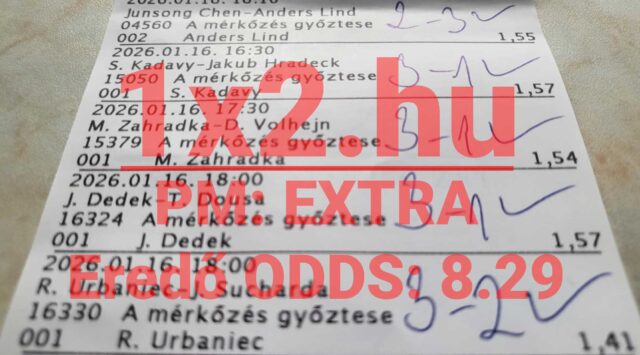 2026.01.16. 16:10
Junsong Chen-Anders Lind
04560 A mérkőzés győztese 2-3 ✓
002 Anders Lind 1,55
2026.01.16. 16:30
S. Kadavy-Jakub Hradeck
15050 A mérkőzés győztese 3-1 ✓
001 S. Kadavy 1,57
2026.01.16. 17:30
M. Zahradka-D. Volhejn
15379 A mérkőzés győztese 3-1 ✓
001 M. Zahradka 1,54
2026.01.16. 18:00
J. Dedek-T. Dousa
16324 A mérkőzés győztese 3-1 ✓
001 J. Dedek 1,57
2026.01.16. 18:00
R. Urbaniec-J. Sucharda
16330 A mérkőzés győztese 3-2 ✓
001 R. Urbaniec 1,41
1x2.hu
PM: EXTRA
Eredő ODDS: 8.29